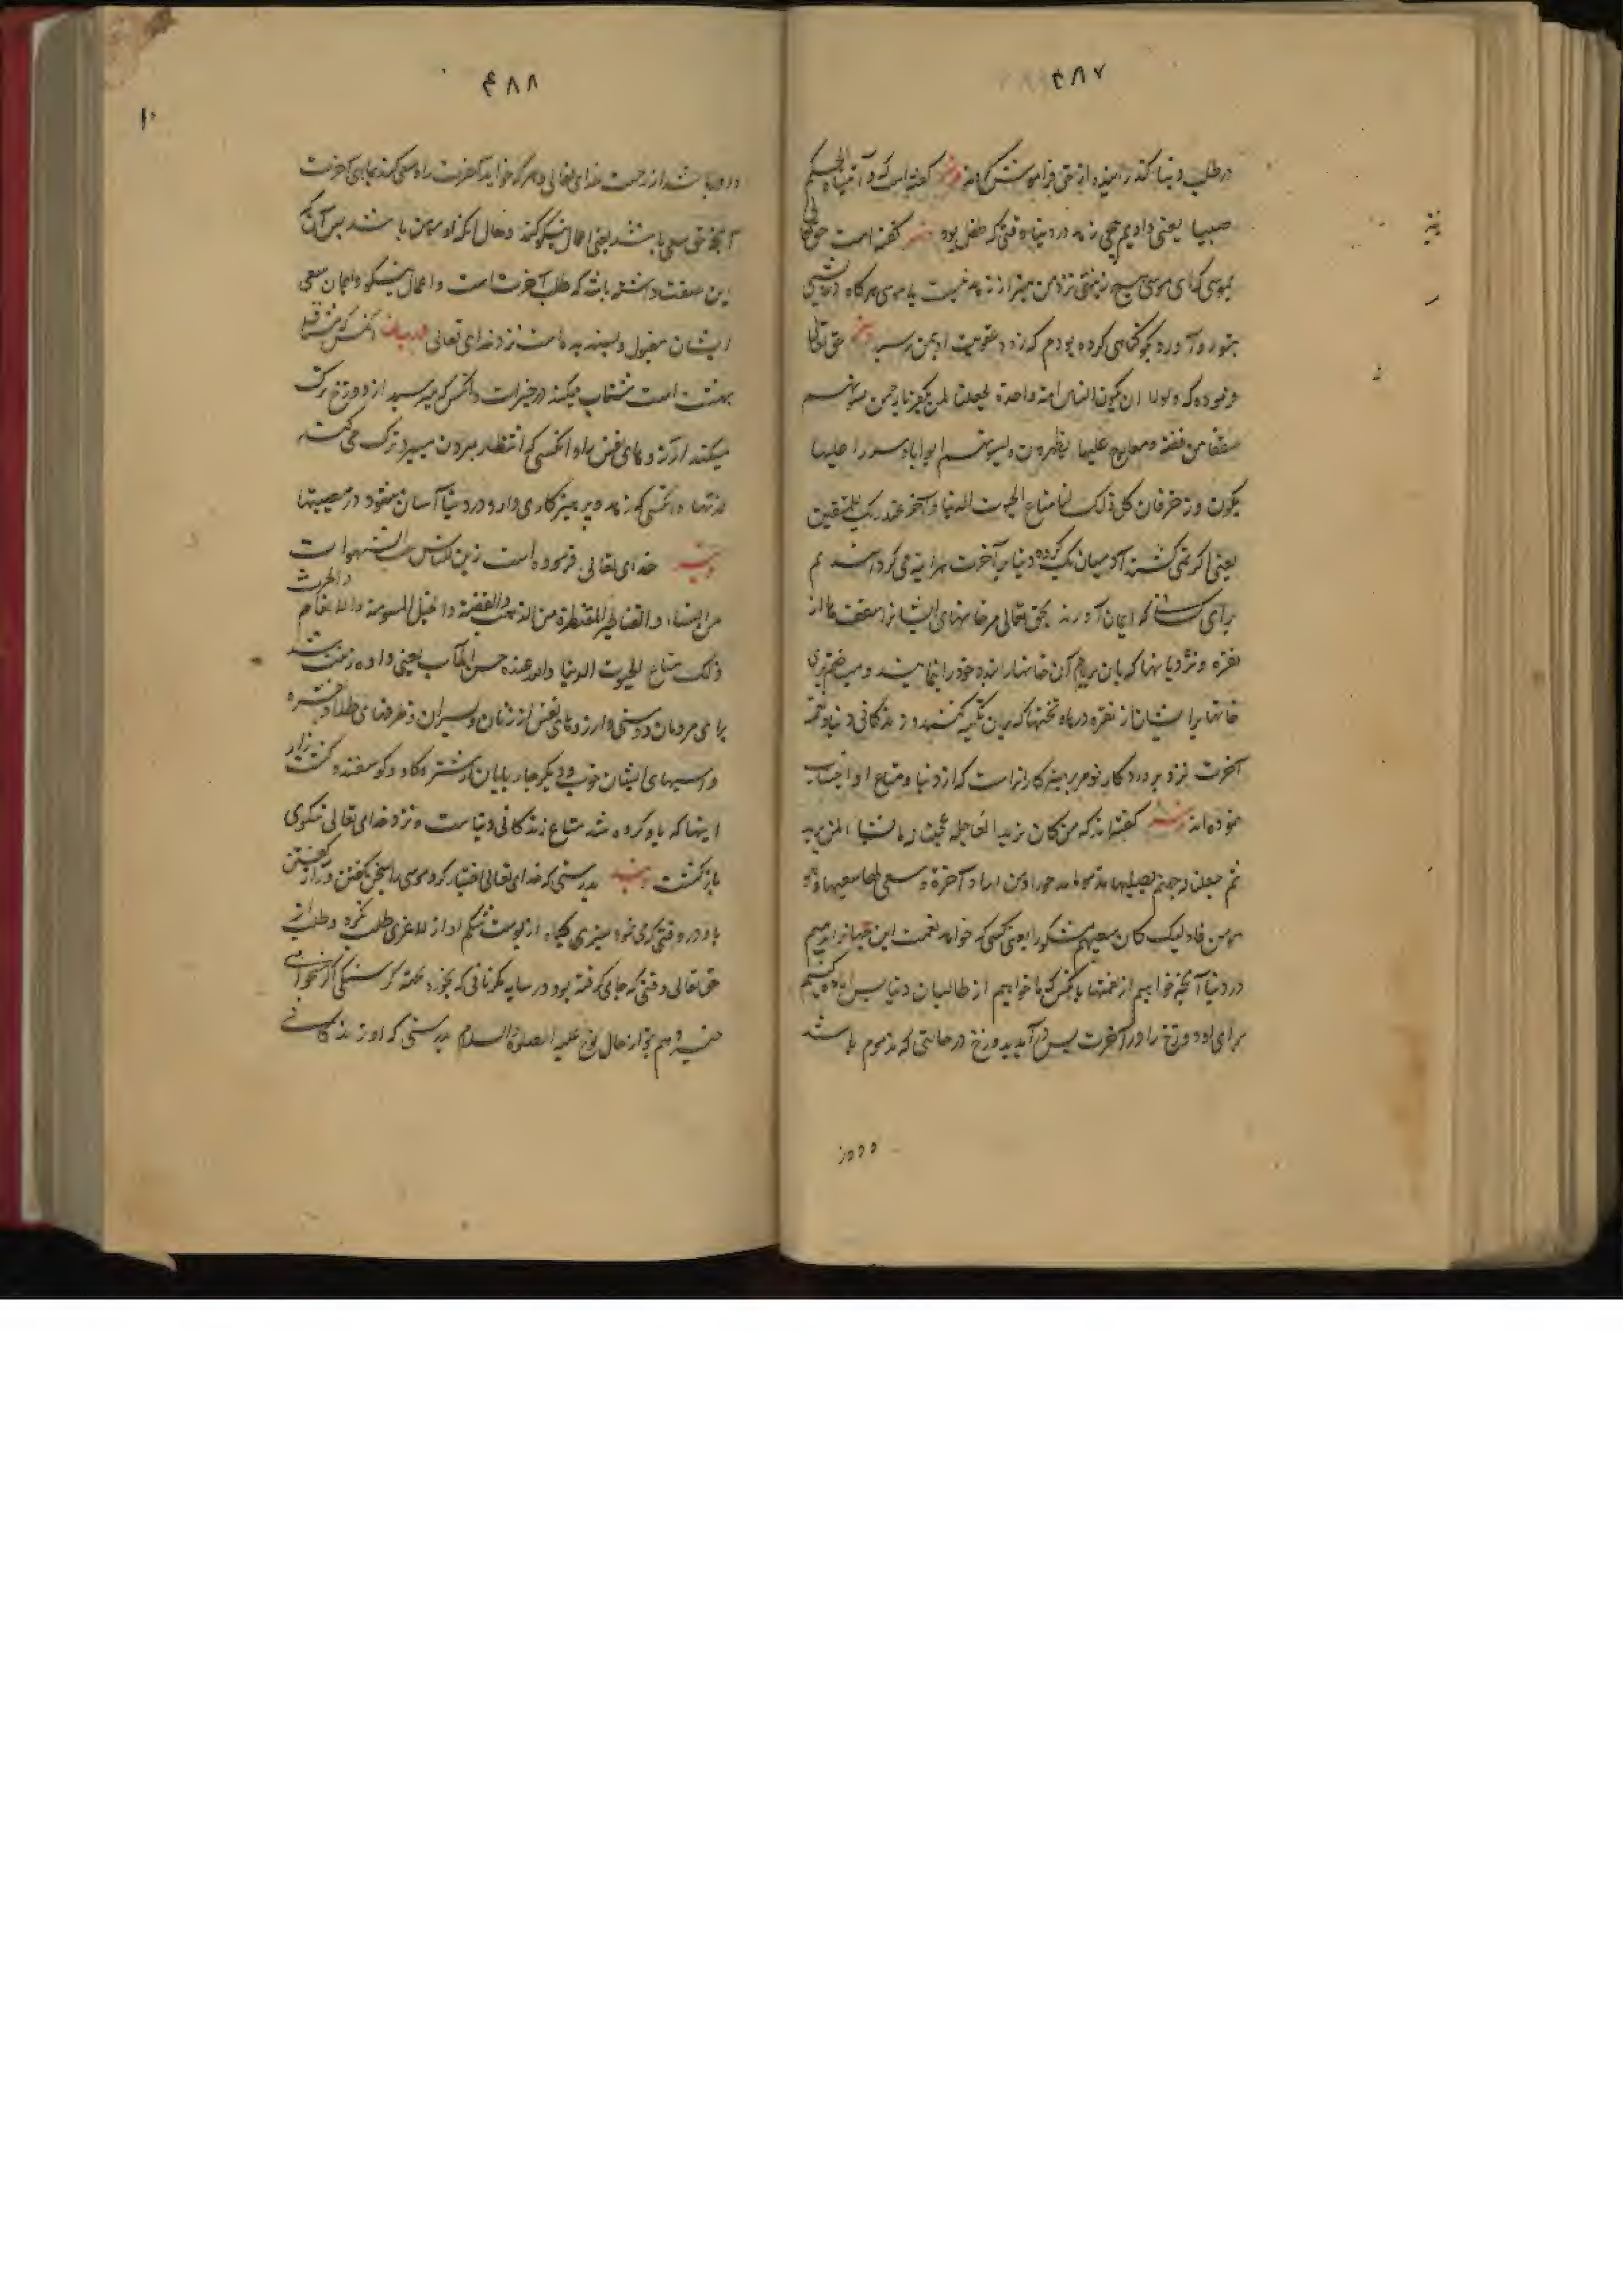 ۴۸۷
در طلب دنیا گذرانیده از حق فراموش کرده و نیز گفته است که و آتیناه الحکم
صبیا یعنی دادیم یحیی زهد در دنیا وقتی که طفل بود و نیز گفته است حق تعالی
بموسی که ای موسی هیچ زینتی نزد من بهتر از زهد نیست یا موسی هرگاه درویشی
بتو رو آورد بگو گناهی کرده بودم که زود عقوبت او بمن رسید و نیز حق تعالی
فرموده که ولولا ان یکون الناس امة واحدة لجعلنا لمن یکفر بالرحمن لبیوتهم
سقفا من فضة ومعارج علیها یظهرون ولبیوتهم ابوابا وسررا علیها
یتکون وزخرفا وان کل ذلک لما متاع الحیوت الدنیا والآخرة عند ربک للمتقین
یعنی اگر نمی گشتند آدمیان یک گروه دنیا بر آخرت هر اینه می گرداندیم
برای کسانی که ایمان آورند بحق تعالی مر خانهای ایشانرا سقف ها از
نقره و نردبانها که بان بربام آن خانها برایند و خود را بنمایند و میساختیم برای
خانها ایشان از نقره درها و تختها که بران تکیه کنند و زندگانی دنیا و نعمت
آخرت نزد پروردگار تو مر پرهیزکارانراست که از دنیا و متاع او اجتناب
نموده اند و نیز گفته اند که من کان یرید العاجلة عجلنا له ما نشاء لمن نرید
ثم جعلنا له جهنم یصلیها مذموما مدحورا ومن اراد آخرة وسعی لها سعیها وهو
مومن فاولیک کان سعیهم مشکورا یعنی کسی که خواهد نعمت این جهانرا بدهیم
در دنیا آنچه خواهیم از نعمتها بانکس که ما خواهیم از طالبان دنیا پس آماده کنیم
برای او دوزخ را در آخرت پس در آید بدوزخ در حالتی که مذموم باشد
۴۸۸
و دور باشد از رحمت خدای تعالی و هر که خواهد آخرت را و سعی کند برای آخرت
آنچه حق سعی باشد یعنی اعمال نیکو کند و حال آنکه او مومن باشد پس آن که
این صفت داشته باشد که طلب آخرت است و اعمال نیکو و ایمان سعی
ایشان مقبول و پسندیده است نزد خدای تعالی آنکس که مشتاق
بهشت است شتاب میکند در خیرات و آنکس که میترسد از دوزخ ترک
میکند آرزوهای نفس را و آنکسی که انتظار مردن میبرد ترک می کند
لذتها و آنکسی که زهد و پرهیزکاری دارد در دنیا آسان میشود در مصیبتها
و نیز خدای تعالی فرموده است زین للناس حب الشهوات
من النساء والقناطیر المقنطرة من الذهب والفضة والخیل المسومة والانعام والحرث
ذلک متاع الحیوت الدنیا والله عنده حسن المآب یعنی داده زینت شد
برای مردمان دوستی و آرزوهای نفس از زنان و پسران و ظرفهای طلا و نقره
و اسپهای ایشان خوب و دیگر چارپایان از شتر و گاو و گوسفند و کشت زار
اینها که یاد کرده شد متاع زندگانی دنیاست و نزد خدای تعالی نیکوی
بازگشت و نیز بدرستی که خدای تعالی اختیار کرد موسی را بسخن گفتن و راز گفتن
با او در وقتی که می نمود سبزی گیاه از پوست شکم او از لاغری طلب نکرد و طلب از
حق تعالی وقتی که جای گرفته بود در سایه مگر نانی که بخورد بجهة گرسنگی اگر میخواهی
خبر دهم ترا از حال نوح علیه الصلوة والسلام بدرستی که او زندگانی